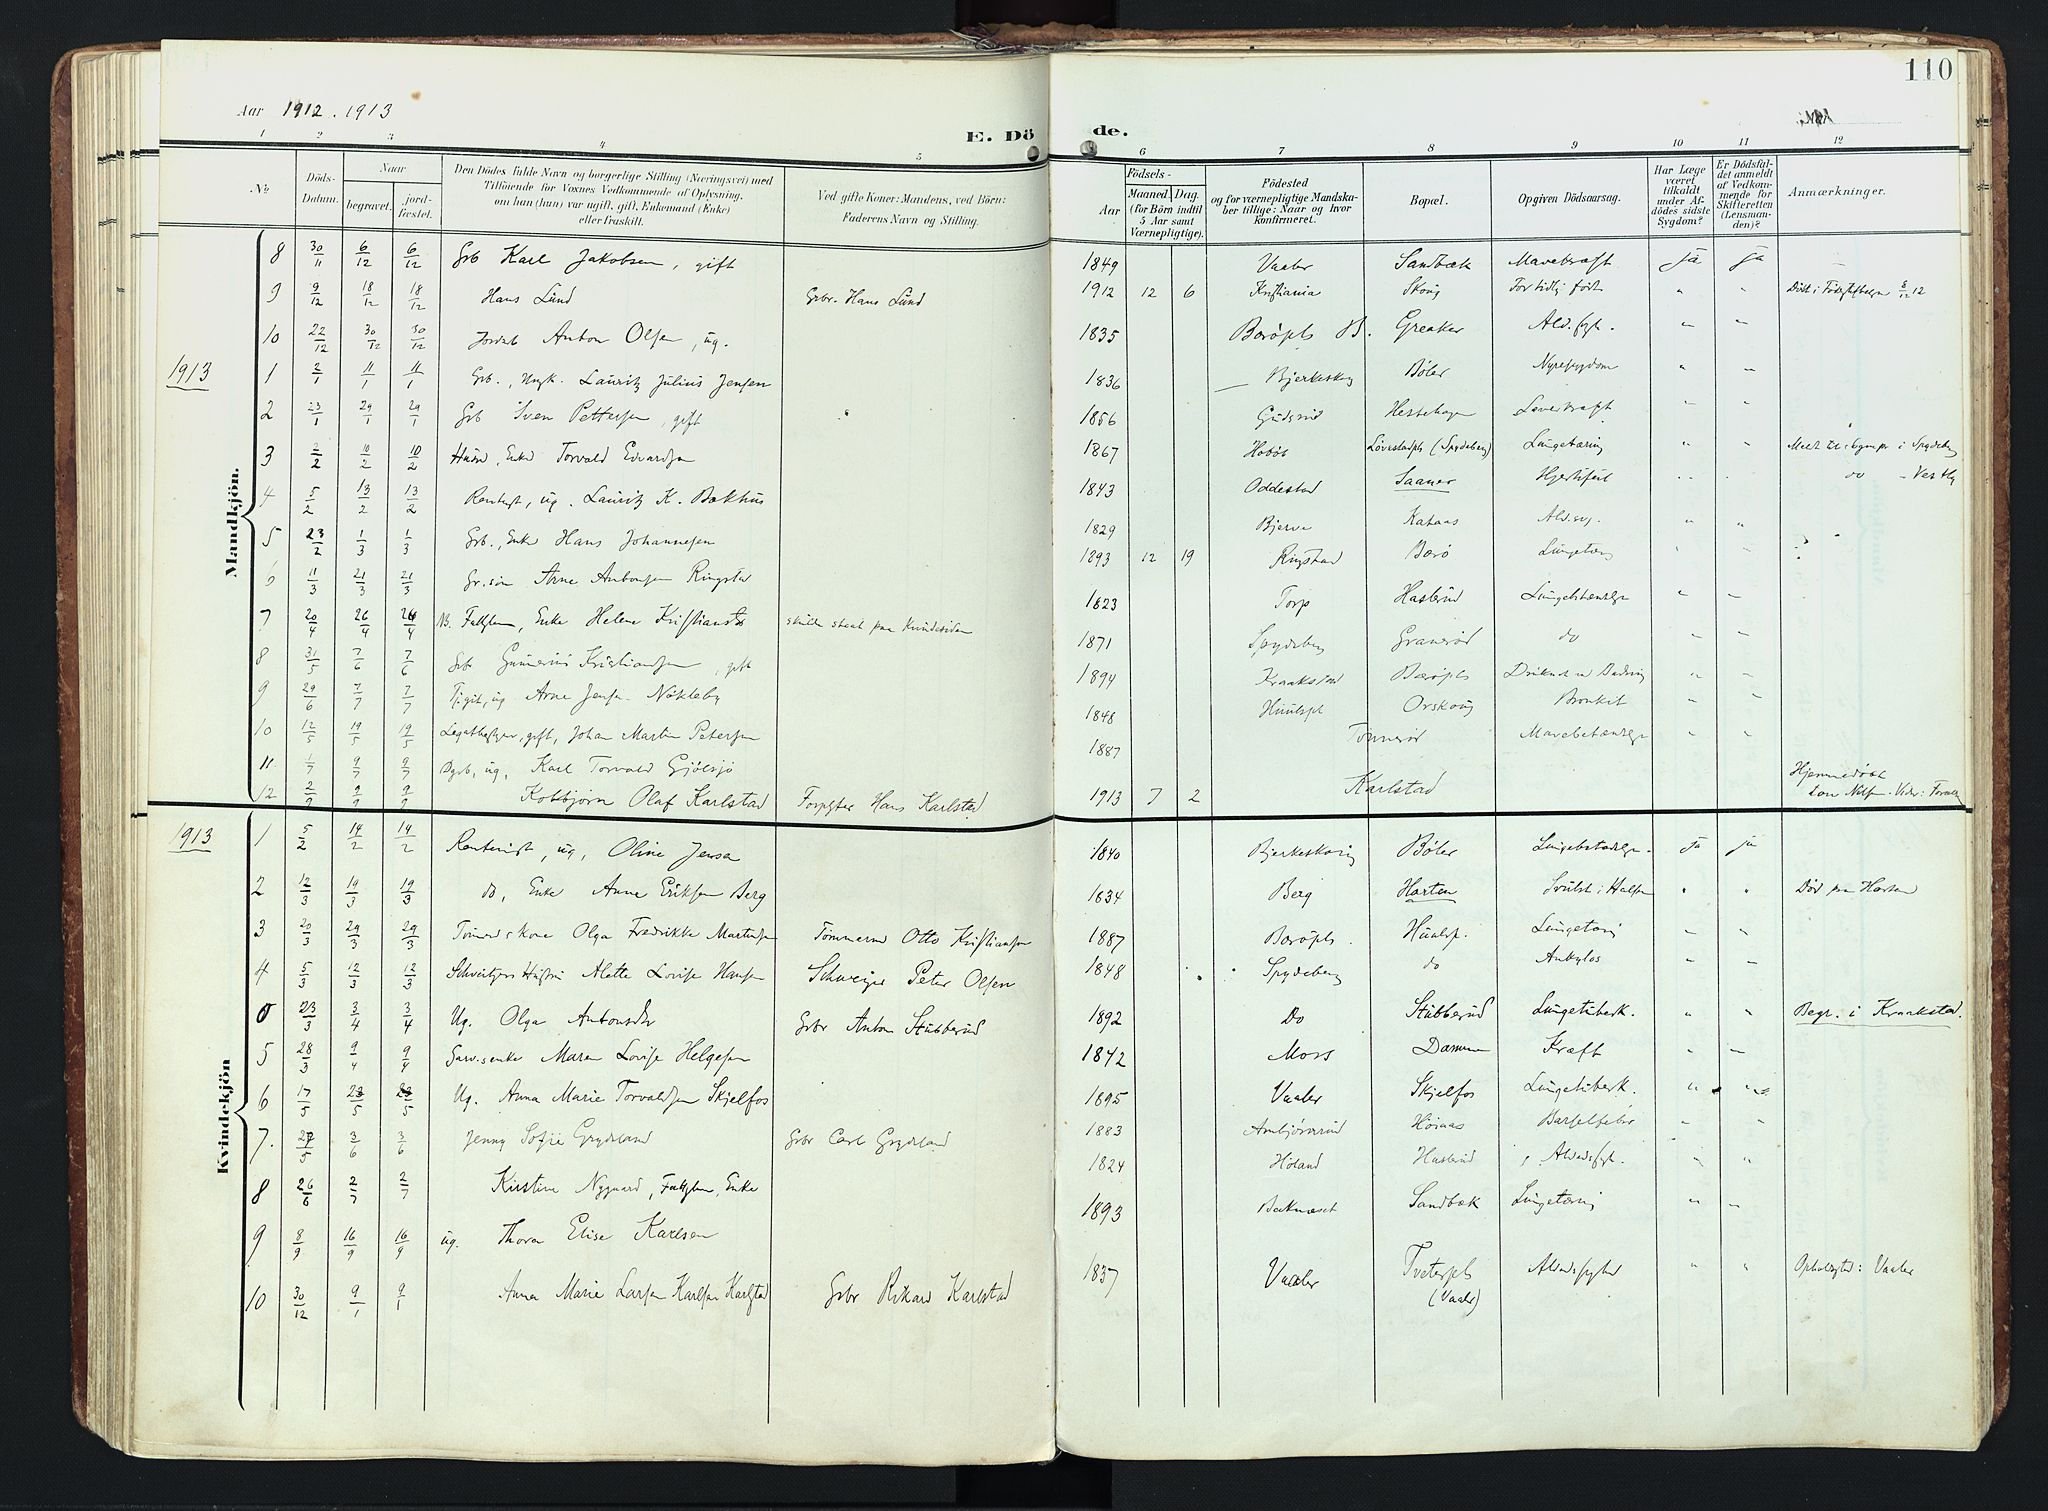 110
Aar 1912. 1913
E. Dö de.
1 2 3 4 5 6 7 8 9 10 11 12
No.
Döds-Datum.
Naar
begravet.
jord-fæstet.
Den Dödes fulde Navn og borgerlige Stilling (Næringsvei) med
Tilföiende for Voxnes Vedkommende af Oplysning,
om han (hun) var ugift, gift, Enkemand (Enke)
eller fraskilt.
Ved gifte Koner: Mandens, ved Börn:
Faderens Navn og Stilling.
Födsels-
Aar
Maaned. Dag.
(for Börn indtil
5 Aar samt
Værnepligtige).
Födested
og for værnepligtige Mandska-
ber tillige: Naar og hvor
konfirmeret.
Bopæl.
Opgiven Dödsaarsag.
Har Læge
været
tilkaldt
under Af-
dödes sidste
Sygdom?
Er Dödsfal-
det anmeldt
af Vedkom-
mende for
Skifteretten
(Lensman-
den)?
Anmærkninger.
Mandkjön.
8 30/11 6/12 6/12 Grb Karl Jakobsen, gift 1849 Vaaler Sandbæk Mavekræft Ja ja
9 9/12 18/12 18/12 Hans Lund Grbr. Hans Lund 1912 12 6 Kristiania Skoug For tidlig født " " 8/12 12
10 22/12 30/12 30/12 Anton Olsen, ug. 1835 Greaker Ald.sygd. " "
1913 1 2/1 11/1 11/1 Grb., Ungk. Lauritz Julius Jensen 1836 Bjerkeskog Bøler Nyresygdom " "
2 23/1 29/1 29/1 Grb Sven Pettersen, gift 1856 Gudsrud Hestehagen Leverkræft " "
3 2/2 10/2 10/2 Husm, Enkm Torvald Edvardsen 1867 Hobøl (Spydeberg) Lungetæring " " i Spydeberg
4 5/2 13/2 13/2 Rentenist, ug. Lauritz K. Bækhus 1843 Oddestad Saaner Hjertefeil " " do
5 23/2 1/3 1/3 Grb., Enkm Hans Johannesen 1829 Bjerve Kataas Ald.syg. " "
6 11/3 21/3 21/3 Gr.søn Arne Antonsen Ringstad 1893 12 19 Ringstad Borø Lungetæring " "
7 20/4 26/4 26/4 NB. Fattiglem, Enke Helene Kristiansd skulde staat paa Kvindesiden 1823 Torp Haslerud Lungebetændelse " "
8 31/5 7/6 7/6 Grb Gunerius Kristiansen, gift 1871 Spydeberg Granerød do " "
9 29/6 7/7 7/7 Tjgut, ug Arne Jensen Nøkleby 1894 Kraakstad Druknet " "
10 12/5 19/5 19/5 gift, Johan Martin Petersen 1848 Orskoug Bronkit " "
11 1/7 9/7 9/7 ug, Karl Torvald Gjølsjø 1887 Tonnerød Mavebetændelse " "
12 2/9 9/9 9/9 Kolbjørn Olaf Karlstad Hans Karlstad 1913 7 2 Karlstad Hjemmedøbt
Kvindekjön
1913 1 5/2 14/2 14/2 Rentenist, ug, Oline Jensen 1840 Bjerkeskoug Bøler Lungebetændelse. Ja ja
2 12/3 19/3 19/3 do, Enke Anne Eriksen Berg 1834 Berg Harten Svulst i Halsen " " Død paa Harten
3 20/3 29/3 29/3 Olga Fredrikke Martinsen Tømmermd Otto Kristiansen 1887 Lungetæring " "
4 5/3 12/3 12/3 Hustru Alette Lovise Hansen Schweizer Peter Olsen 1848 Spydeberg do " "
0 23/3 3/4 3/4 Ug. Olga Antonsdtr Grbr Anton Stubberud 1892 Do Stubberud Lungetuberk. " " Begr. i Kraakstad.
5 28/3 9/4 9/4 Maren Lovise Helgesen 1842 Moss Dammen Kræft " "
6 17/5 23/5 23/5 Ug. Anna Marie Torvaldsen Skjelfos 1895 Vaaler Skjelfos Lungetuberk. " "
7. 27/5 3/6 3/6 Jenny Sofie Grydeland Grbr Carl Grydeland 1883 Høiaas Barselfeber " "
8 26/6 2/7 2/7 Kirstine Nygaard, Fattiglem, Enke 1824 Høland Haslerud Alderdsygd. " "
9 8/9 16/9 16/9 ug. Thora Elise Karlsen 1893 Sandbæk Lungetæring " "
10 30/12 9/1 9/1 Anna Marie Larsen Karlsen Karlstad Grbr Rikard Karlstad 1837 Vaaler Tveterpl. Alderdsygdom " " Vaaler
(Vaaler)